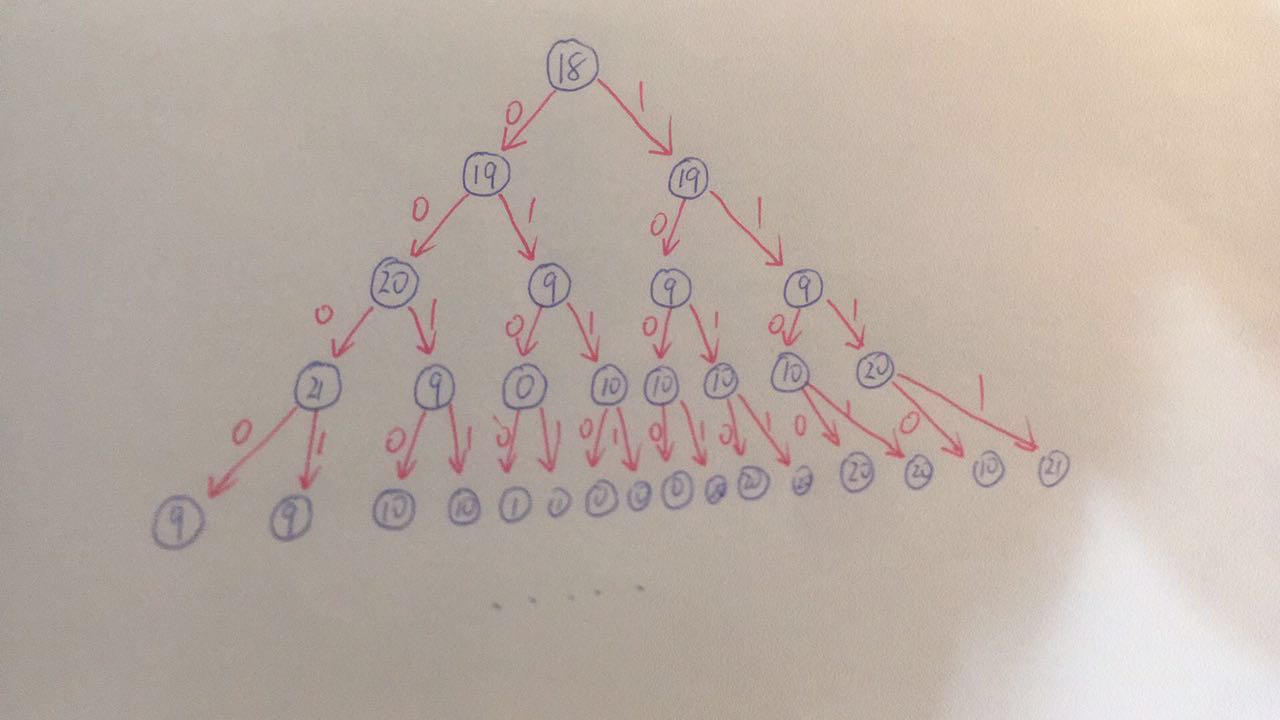 18
0 1
19 19
0 1 0 1
20 9 9 9
0 1 0 1 0 1 0 1
21 9 0 10 10 10 10 20
0 1 0 1 0 1 0 1 0 1 0 1 0 1 0 1
9 9 10 10 1 0 0 20 20 20 10 21
. . . . .